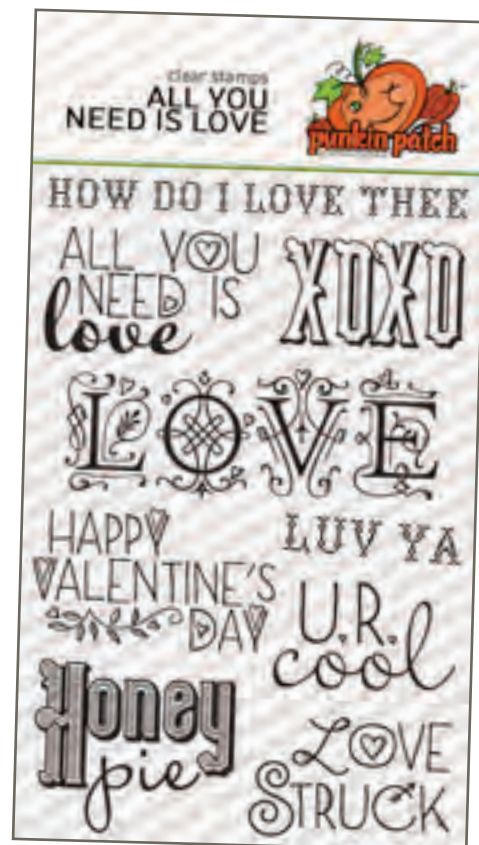 clear stamps
ALL YOU
NEED IS LOVE
punkin patch
HOW DO I LOVE THEE
ALL YOU
NEED IS
love
XOXO
LOVE
HAPPY
VALENTINE'S
DAY
LUV YA
U.R.
cool
Honey
pie
LOVE
STRUCK